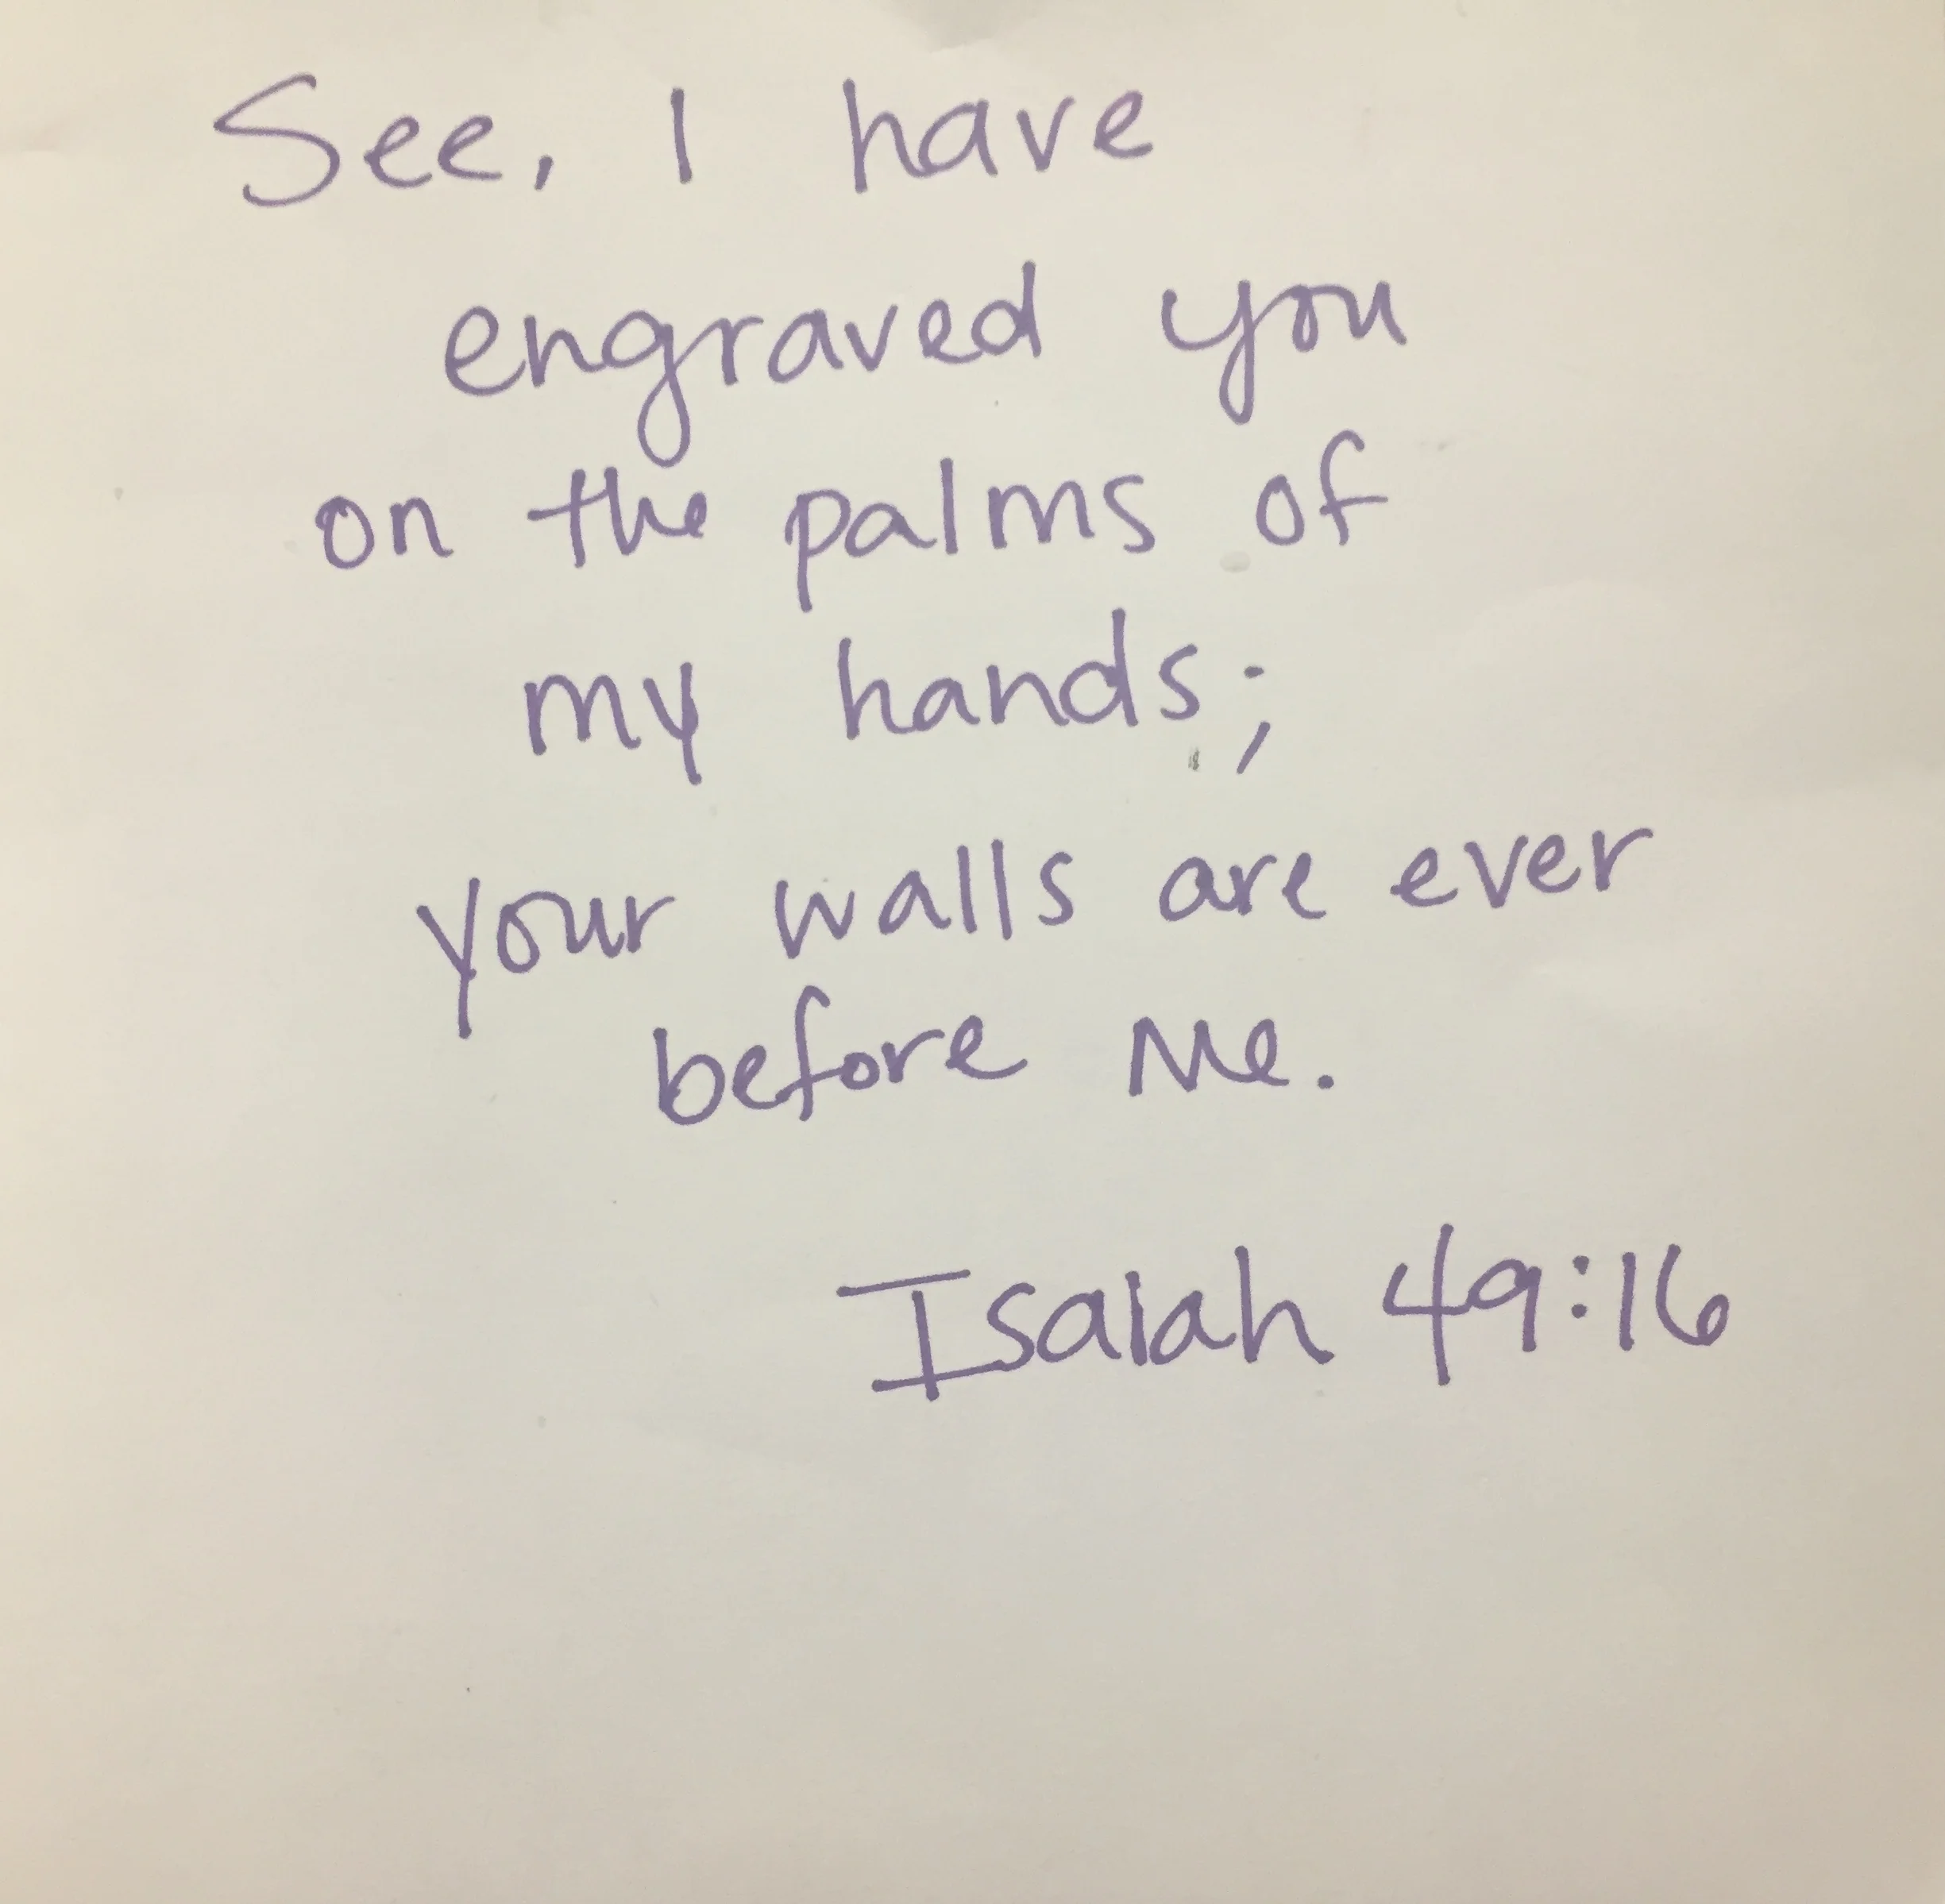 See, I have
engraved you
on the palms of
my hands;
your walls are ever
before Me.
Isaiah 49:16